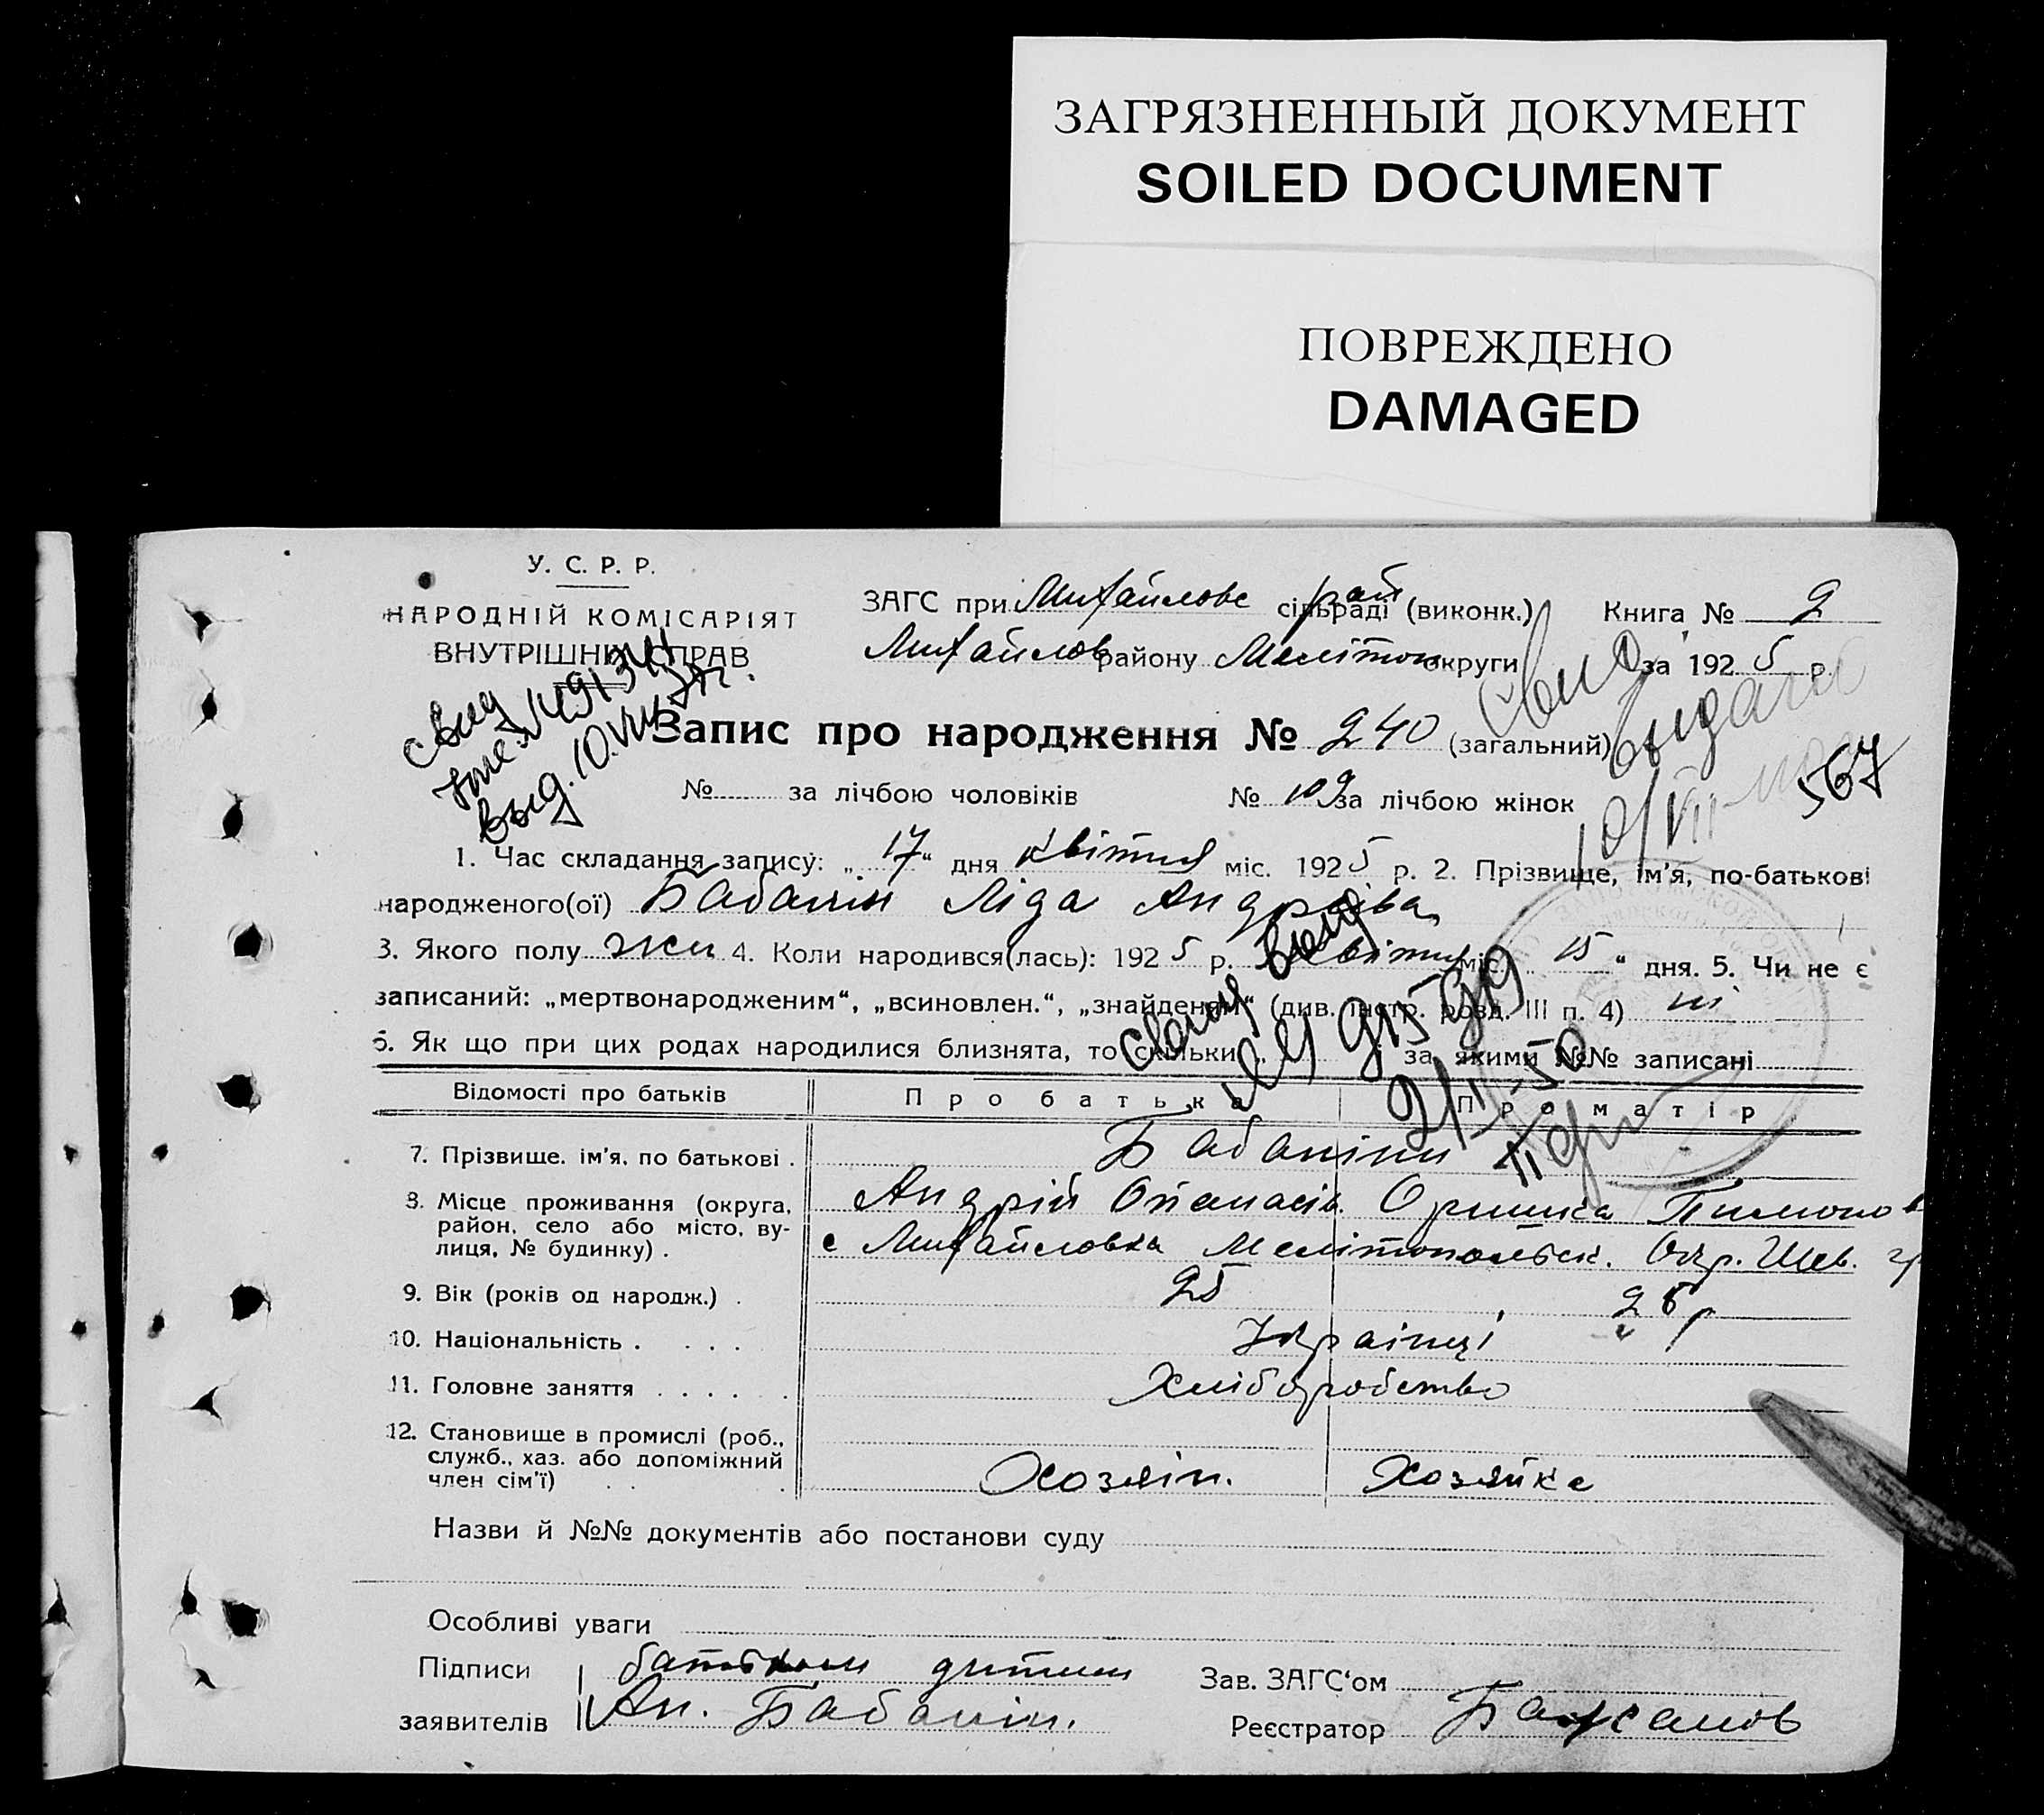 ЗАГРЯЗНЕННЫЙ ДОКУМЕНТ
SOILED DOCUMENT
ПОВРЕЖДЕНО
DAMAGED
У. С. Р. Р.
НАРОДНІЙ КОМІСАРІЯТ
ВНУТРІШНІХ СПРАВ
ЗАГС при Михайловс рай сільраді (виконк.) Книга № 2
Михайлов району Мелітоп округи за 1925 р.
Свид
выд. 10.VII
Свид
выдано
10/VII
567
Запис про народження № 240 (загальний)
№ за лічбою чоловіків № 109 за лічбою жінок
1. Час складання запису: „17“ дня квітня міс. 1925 р. 2. Прізвище, ім'я, по-батькові
народженого(ої) Бабанін Ліда Андріїва
3. Якого полу жін 4. Коли народився(лась): 1925 р. квітня міс. „15“ дня. 5. Чи не є
записаний: „мертвонародженим“, „всиновлен.“, „знайденям“ (див. інстр. розд. III п. 4) ні
6. Як що при цих родах народилися близнята, то скільки „ і за якими №№ записані
Відомості про батьків Про батька Про матір
7. Прізвище, ім'я, по батькові . Бабаніни
Андрій Опанасів. Оришка Пимонов
8. Місце проживання (округа, район, село або місто, вулиця, № будинку) . с Михайловка Мелітопольск. Окр. Шев. гр
9. Вік (років од народж.) . 25 26 р
10. Національність . . . . Українці
11. Головне заняття . . . . . . Хліборобство
12. Становище в промислі (роб., служб., хаз. або допоміжний член сім'ї) . . . Хозяін. Хозяйка
Назви й №№ документів або постанови суду
Особливі уваги
Підписи батьком дитини Зав. ЗАГС'ом
заявителів Ан. Бабанін. Реєстратор Бажанов